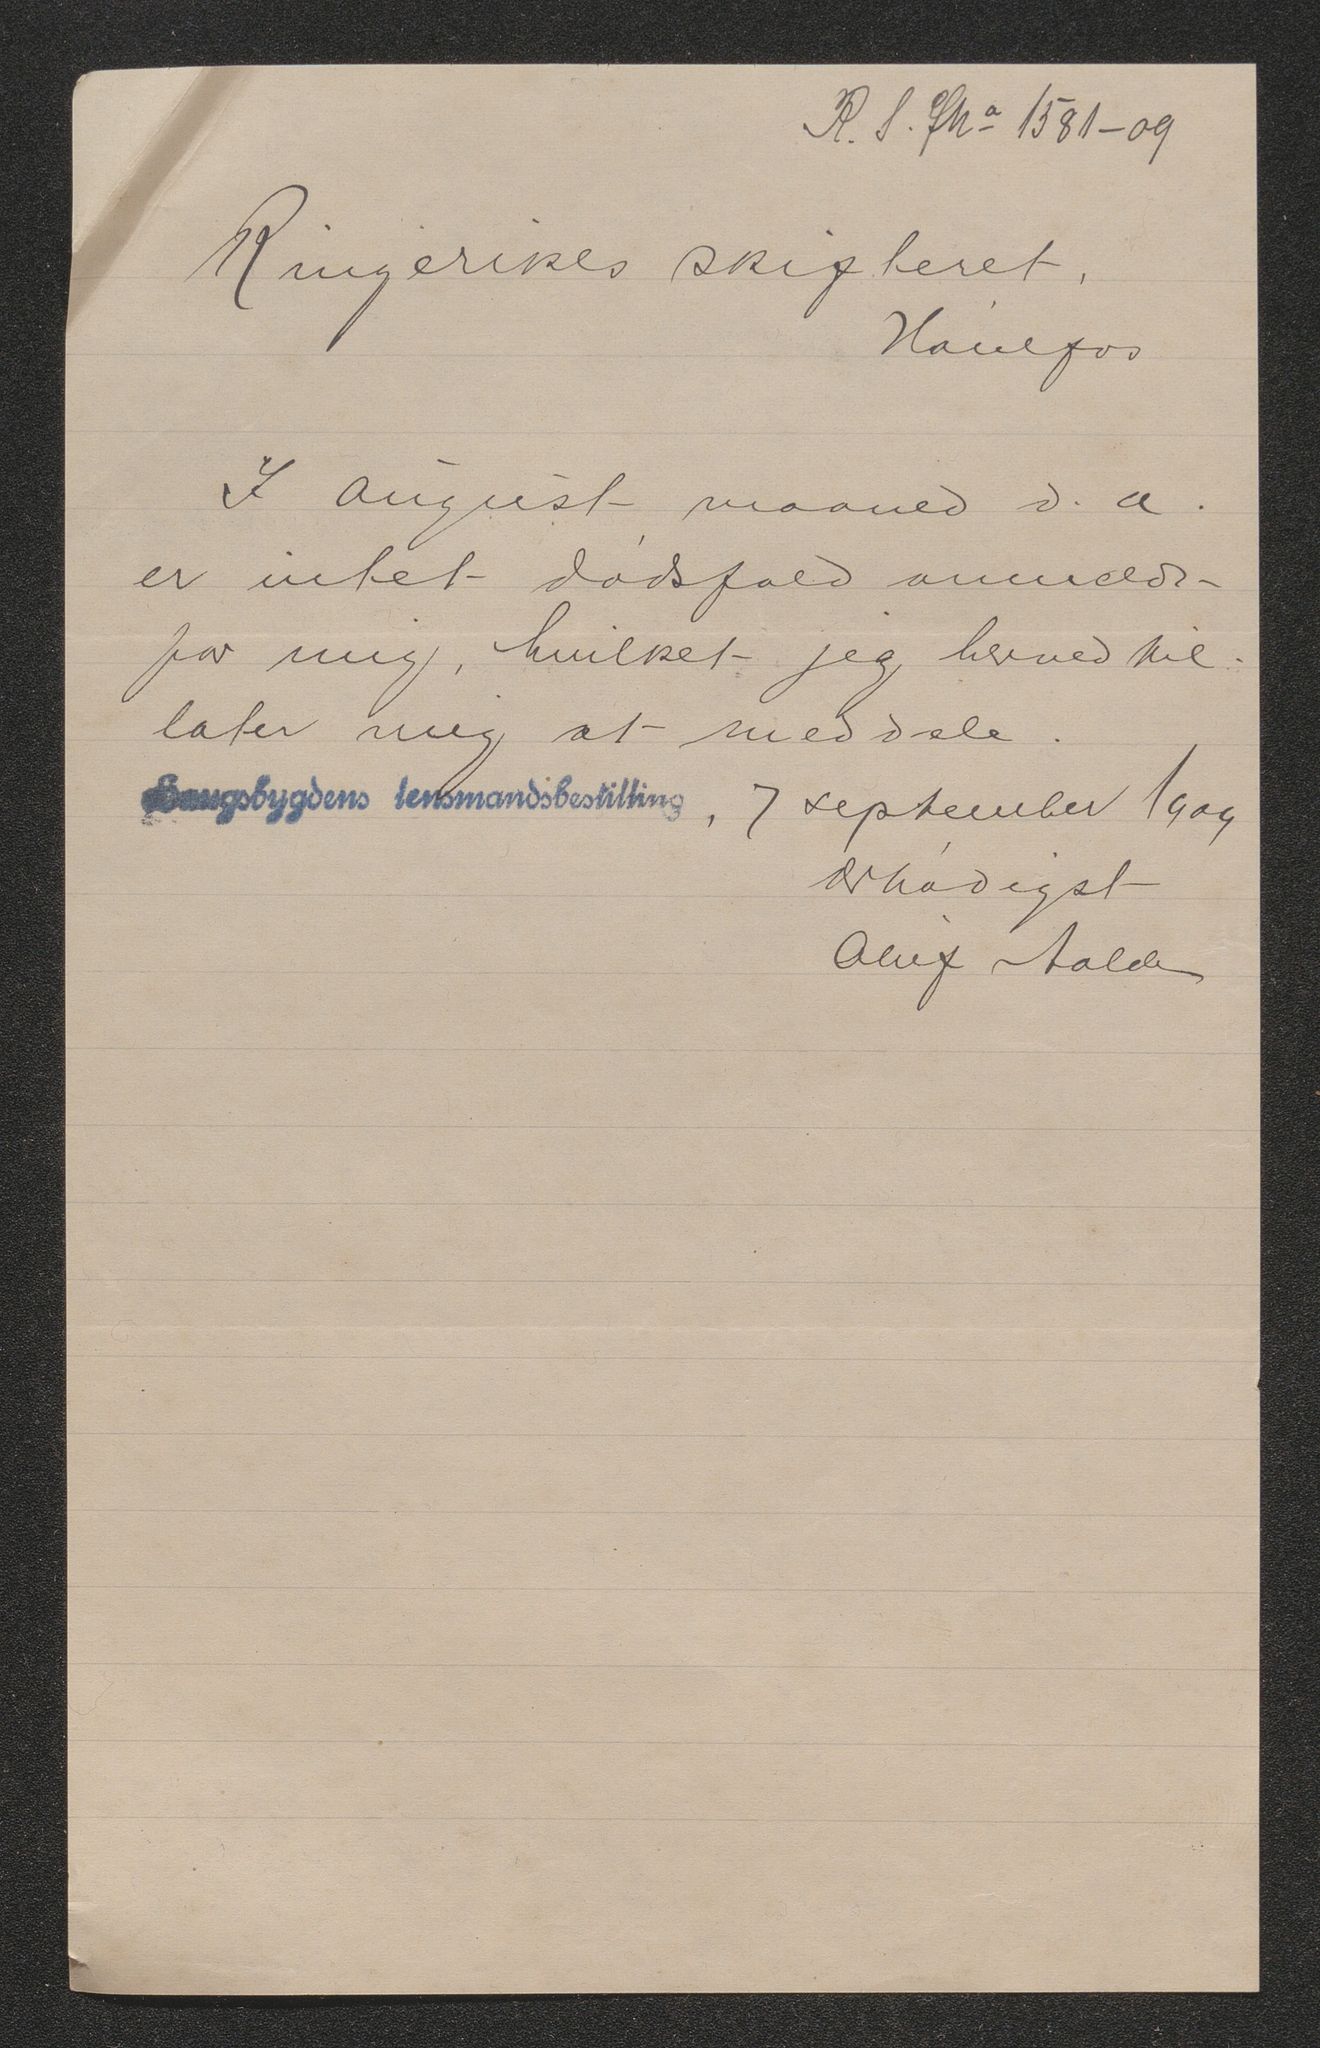 R. S. Jnº 1581-09
Ringerikes skifteret,
Hønefos
I august maaned d. a.
er intet dødsfald anmeldt
for mig, hvilket jeg herved til-
later mig at meddele.
Haugsbygdens lensmandsbestilling, 7 september 1909
Ærbødigst
Oluf